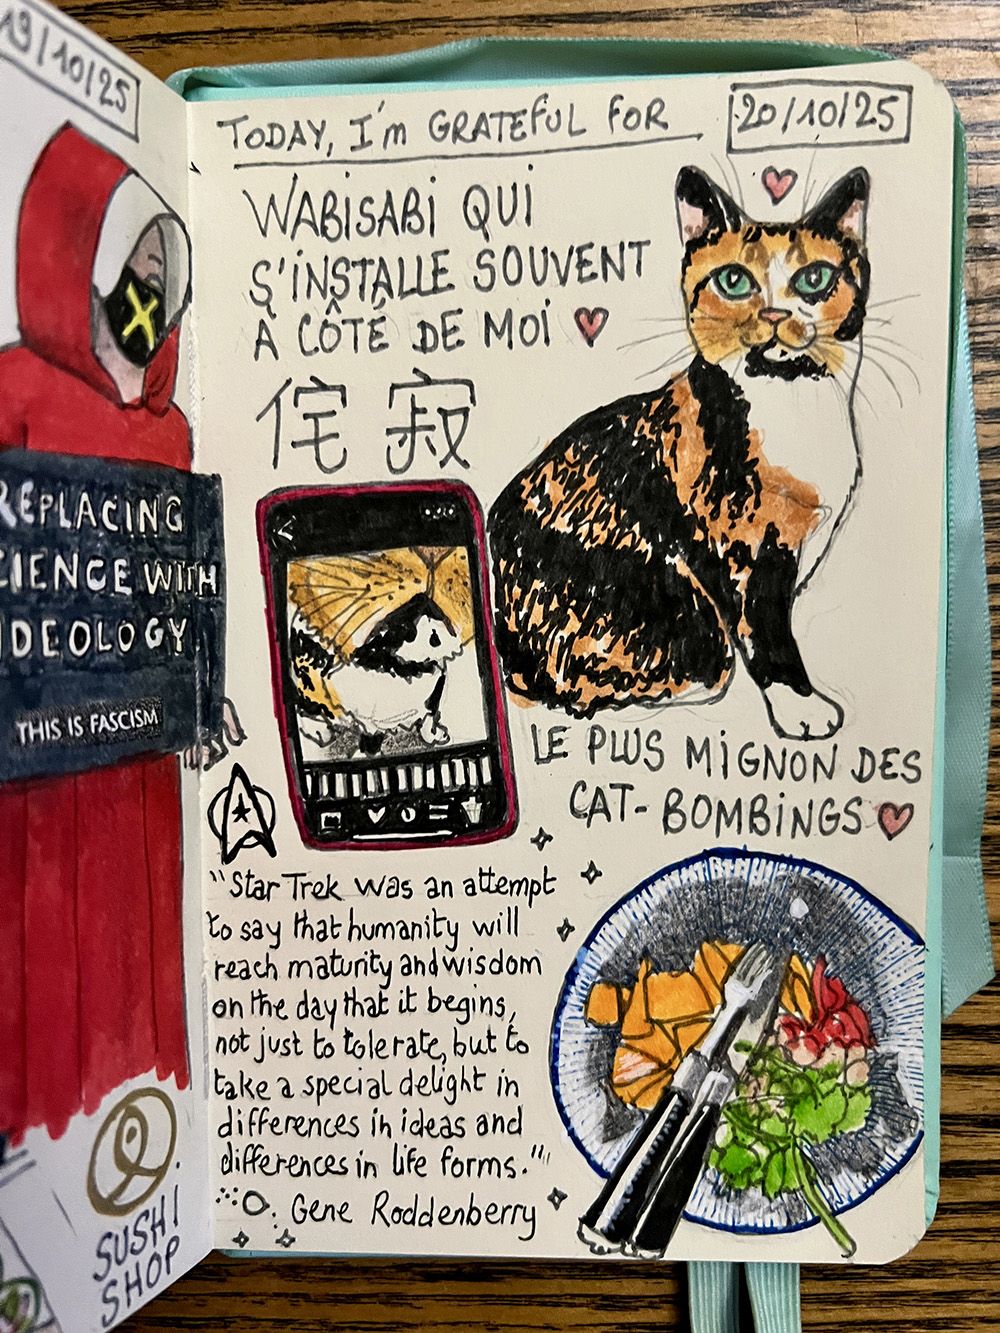 19/10/25
REPLACING
SCIENCE WITH
IDEOLOGY
THIS IS FASCISM
SUSHI
SHOP
TODAY, I'm GRATEFUL FOR
20/10/25
WABISABI QUI
S'INSTALLE SOUVENT
À CÔTÉ DE MOI
侘寂
LE PLUS MIGNON DES
CAT-BOMBINGS
"Star Trek was an attempt
to say that humanity will
reach maturity and wisdom
on the day that it begins,
not just to tolerate, but to
take a special delight in
differences in ideas and
differences in life forms."
Gene Roddenberry